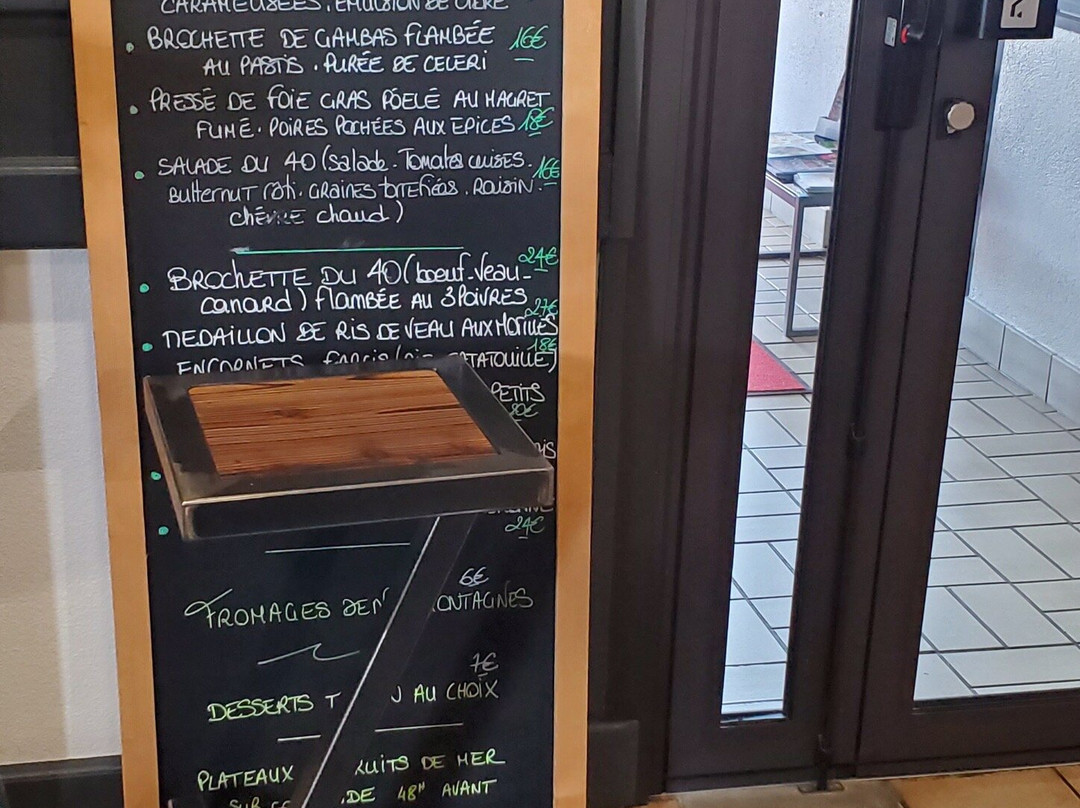 CARAMELISEES. EMULSION DE
BROCHETTE DE GAMBAS FLAMBÉE 16€
AU PASTIS. PURÉE DE CELERI
PRESSÉ DE FOIE GRAS POELÉ AU MAGRET
FUMÉ. POIRES POCHÉES AUX EPICES 18€
SALADE DU 40 (salade. Tomates cerises. 16€
Butternut rôti. GRAINES torrefiées. Raisin.
chèvre chaud)
24€
BROCHETTE DU 40 (boeuf-veau-
canard) flambée AU 3 POIVRES
27€
MEDAILLON DE RIS DE VEAU AUX MORILLES
18€
ENCORNETS farcis ATATOUILLE)
PETITS
24€
6€
FROMAGES DE ONTAGNES
7€
DESSERTS AU CHOIX
PLATEAUX RUITS DE MER
SUR DE 48H AVANT